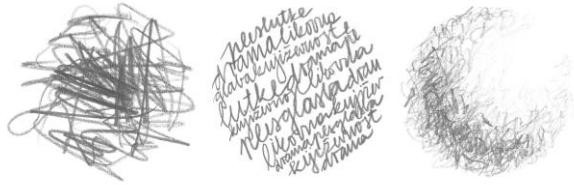 ples lutke
drama likovna
glazba književnost
lutke drama ples
književnost likovna
ples glazba dram
likovna književ
drama ples glazba
književnost
drama